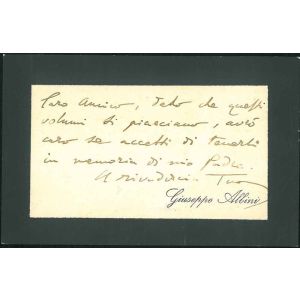 Caro Amico, Dato che questi
volumi ti piacciano, avrò
caro se accetti di tenerli
in memoria di mio Padre.
Arrivederci Tuo
Giuseppe Albini